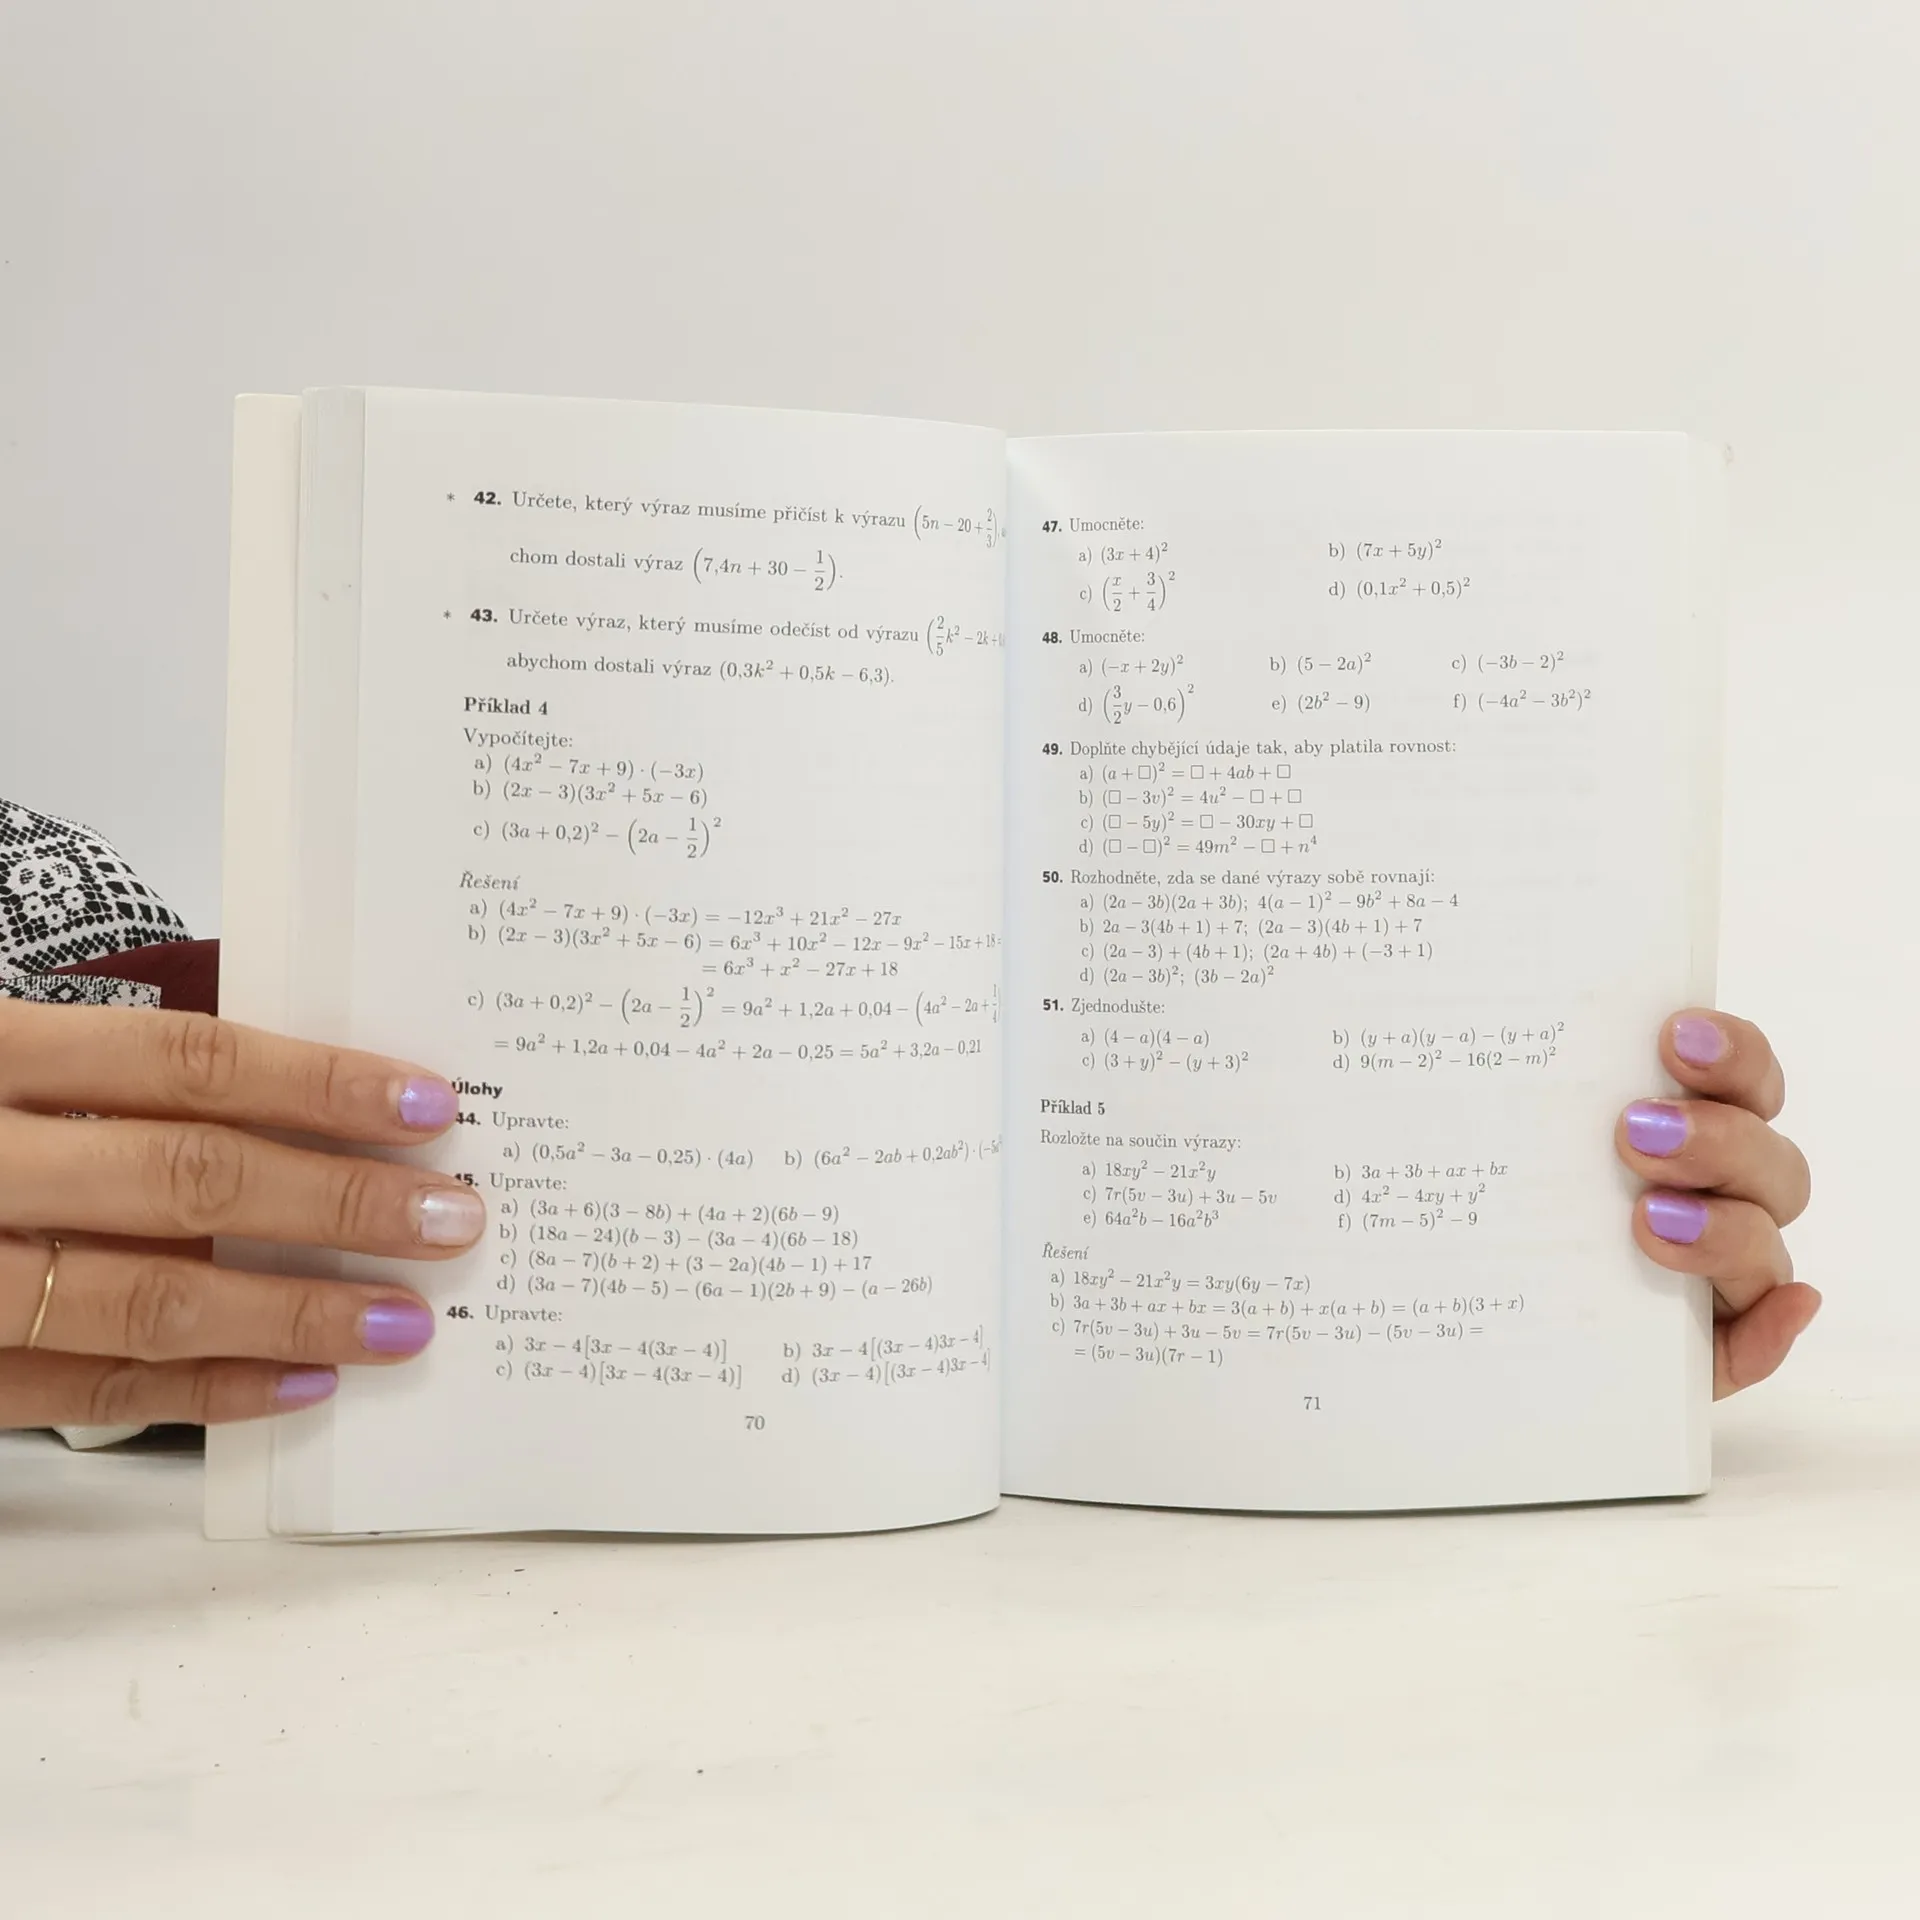 * 42. Určete, který výraz musíme přičíst k výrazu (5n − 20 + 2/3),
chom dostali výraz (7,4n + 30 − 1/2).
* 43. Určete výraz, který musíme odečíst od výrazu (2/5 k² − 2k +
abychom dostali výraz (0,3k² + 0,5k − 6,3).
Příklad 4
Vypočítejte:
a) (4x² − 7x + 9) · (−3x)
b) (2x − 3)(3x² + 5x − 6)
c) (3a + 0,2)² − (2a − 1/2)²
Řešení
a) (4x² − 7x + 9) · (−3x) = −12x³ + 21x² − 27x
b) (2x − 3)(3x² + 5x − 6) = 6x³ + 10x² − 12x − 9x² − 15x + 18 =
= 6x³ + x² − 27x + 18
c) (3a + 0,2)² − (2a − 1/2)² = 9a² + 1,2a + 0,04 − (4a² − 2a + 1/4
= 9a² + 1,2a + 0,04 − 4a² + 2a − 0,25 = 5a² + 3,2a − 0,21
Úlohy
44. Upravte:
a) (0,5a² − 3a − 0,25) · (4a) b) (6a² − 2ab + 0,2ab²) · (−5a
45. Upravte:
a) (3a + 6)(3 − 8b) + (4a + 2)(6b − 9)
b) (18a − 24)(b − 3) − (3a − 4)(6b − 18)
c) (8a − 7)(b + 2) + (3 − 2a)(4b − 1) + 17
d) (3a − 7)(4b − 5) − (6a − 1)(2b + 9) − (a − 26b)
46. Upravte:
a) 3x − 4[3x − 4(3x − 4)] b) 3x − 4[(3x − 4)3x − 4]
c) (3x − 4)[3x − 4(3x − 4)] d) (3x − 4)[(3x − 4)3x − 4]
70
47. Umocněte:
a) (3x + 4)² b) (7x + 5y)²
c) (x/2 + 3/4)² d) (0,1x² + 0,5)²
48. Umocněte:
a) (−x + 2y)² b) (5 − 2a)² c) (−3b − 2)²
d) (3/2 y − 0,6)² e) (2b² − 9) f) (−4a² − 3b²)²
49. Doplňte chybějící údaje tak, aby platila rovnost:
a) (a + □)² = □ + 4ab + □
b) (□ − 3v)² = 4u² − □ + □
c) (□ − 5y)² = □ − 30xy + □
d) (□ − □)² = 49m² − □ + n⁴
50. Rozhodněte, zda se dané výrazy sobě rovnají:
a) (2a − 3b)(2a + 3b); 4(a − 1)² − 9b² + 8a − 4
b) 2a − 3(4b + 1) + 7; (2a − 3)(4b + 1) + 7
c) (2a − 3) + (4b + 1); (2a + 4b) + (−3 + 1)
d) (2a − 3b)²; (3b − 2a)²
51. Zjednodušte:
a) (4 − a)(4 − a) b) (y + a)(y − a) − (y + a)²
c) (3 + y)² − (y + 3)² d) 9(m − 2)² − 16(2 − m)²
Příklad 5
Rozložte na součin výrazy:
a) 18xy² − 21x²y b) 3a + 3b + ax + bx
c) 7r(5v − 3u) + 3u − 5v d) 4x² − 4xy + y²
e) 64a²b − 16a²b³ f) (7m − 5)² − 9
Řešení
a) 18xy² − 21x²y = 3xy(6y − 7x)
b) 3a + 3b + ax + bx = 3(a + b) + x(a + b) = (a + b)(3 + x)
c) 7r(5v − 3u) + 3u − 5v = 7r(5v − 3u) − (5v − 3u) =
= (5v − 3u)(7r − 1)
71